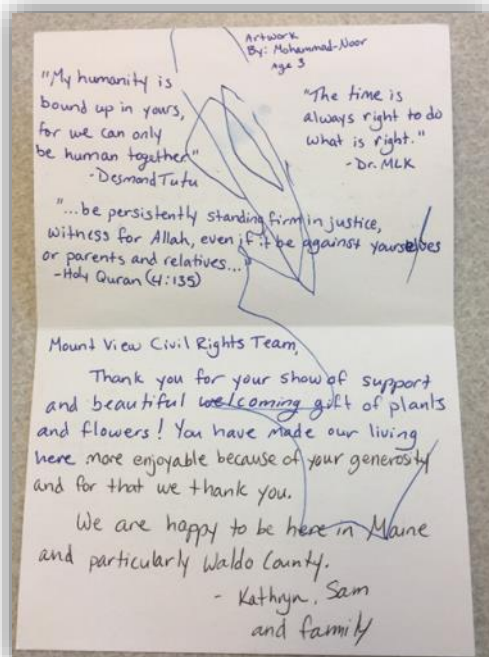 Artwork
By: Mohammad-Noor
Age 3
"My humanity is
bound up in yours,
for we can only
be human together"
-Desmond Tutu
"The time is
always right to do
what is right."
-Dr. MLK
"...be persistently standing firm in justice,
witness for Allah, even if it be against yourselves
or parents and relatives..."
-Holy Quran (4:135)
Mount View Civil Rights Team,
Thank you for your show of support
and beautiful welcoming gift of plants
and flowers! You have made our living
here more enjoyable because of your generosity
and for that we thank you.
We are happy to be here in Maine
and particularly Waldo County.
- Kathryn, Sam
and family